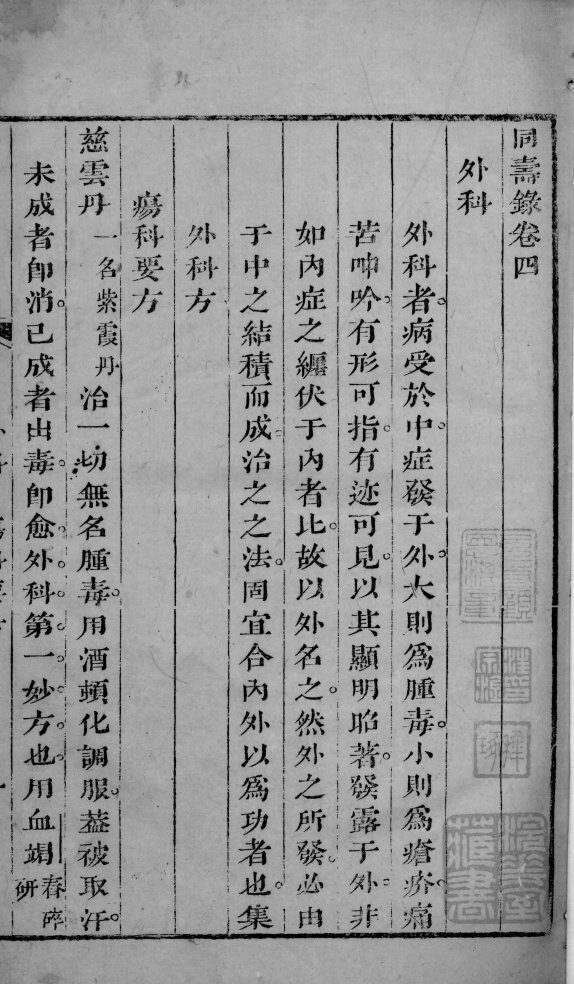 同壽錄卷四
外科
外科者。病受於中。症發于外。大則爲腫毒。小則爲瘡疥。痛
苦呻吟。有形可指。有迹可見。以其顯明昭著。發露于外。非
如內症之纏伏于內者比。故以外名之。然外之所發。必由
于中之結積而成。治之之法。固宜合內外以爲功者也。集
外科方
瘍科要方
慈雲丹一名紫霞丹治一切無名腫毒。用酒頓化調服。葢被取汗。
未成者卽消。已成者出毒。卽愈。外。科。第。一。妙。方。也。用血竭舂碎研